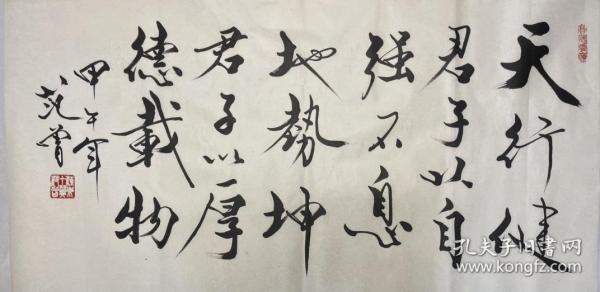 天行健
君子以自
强不息
地勢坤
君子以厚
德載物
甲午年
范曾
孔夫子旧书网
www.kongfz.com